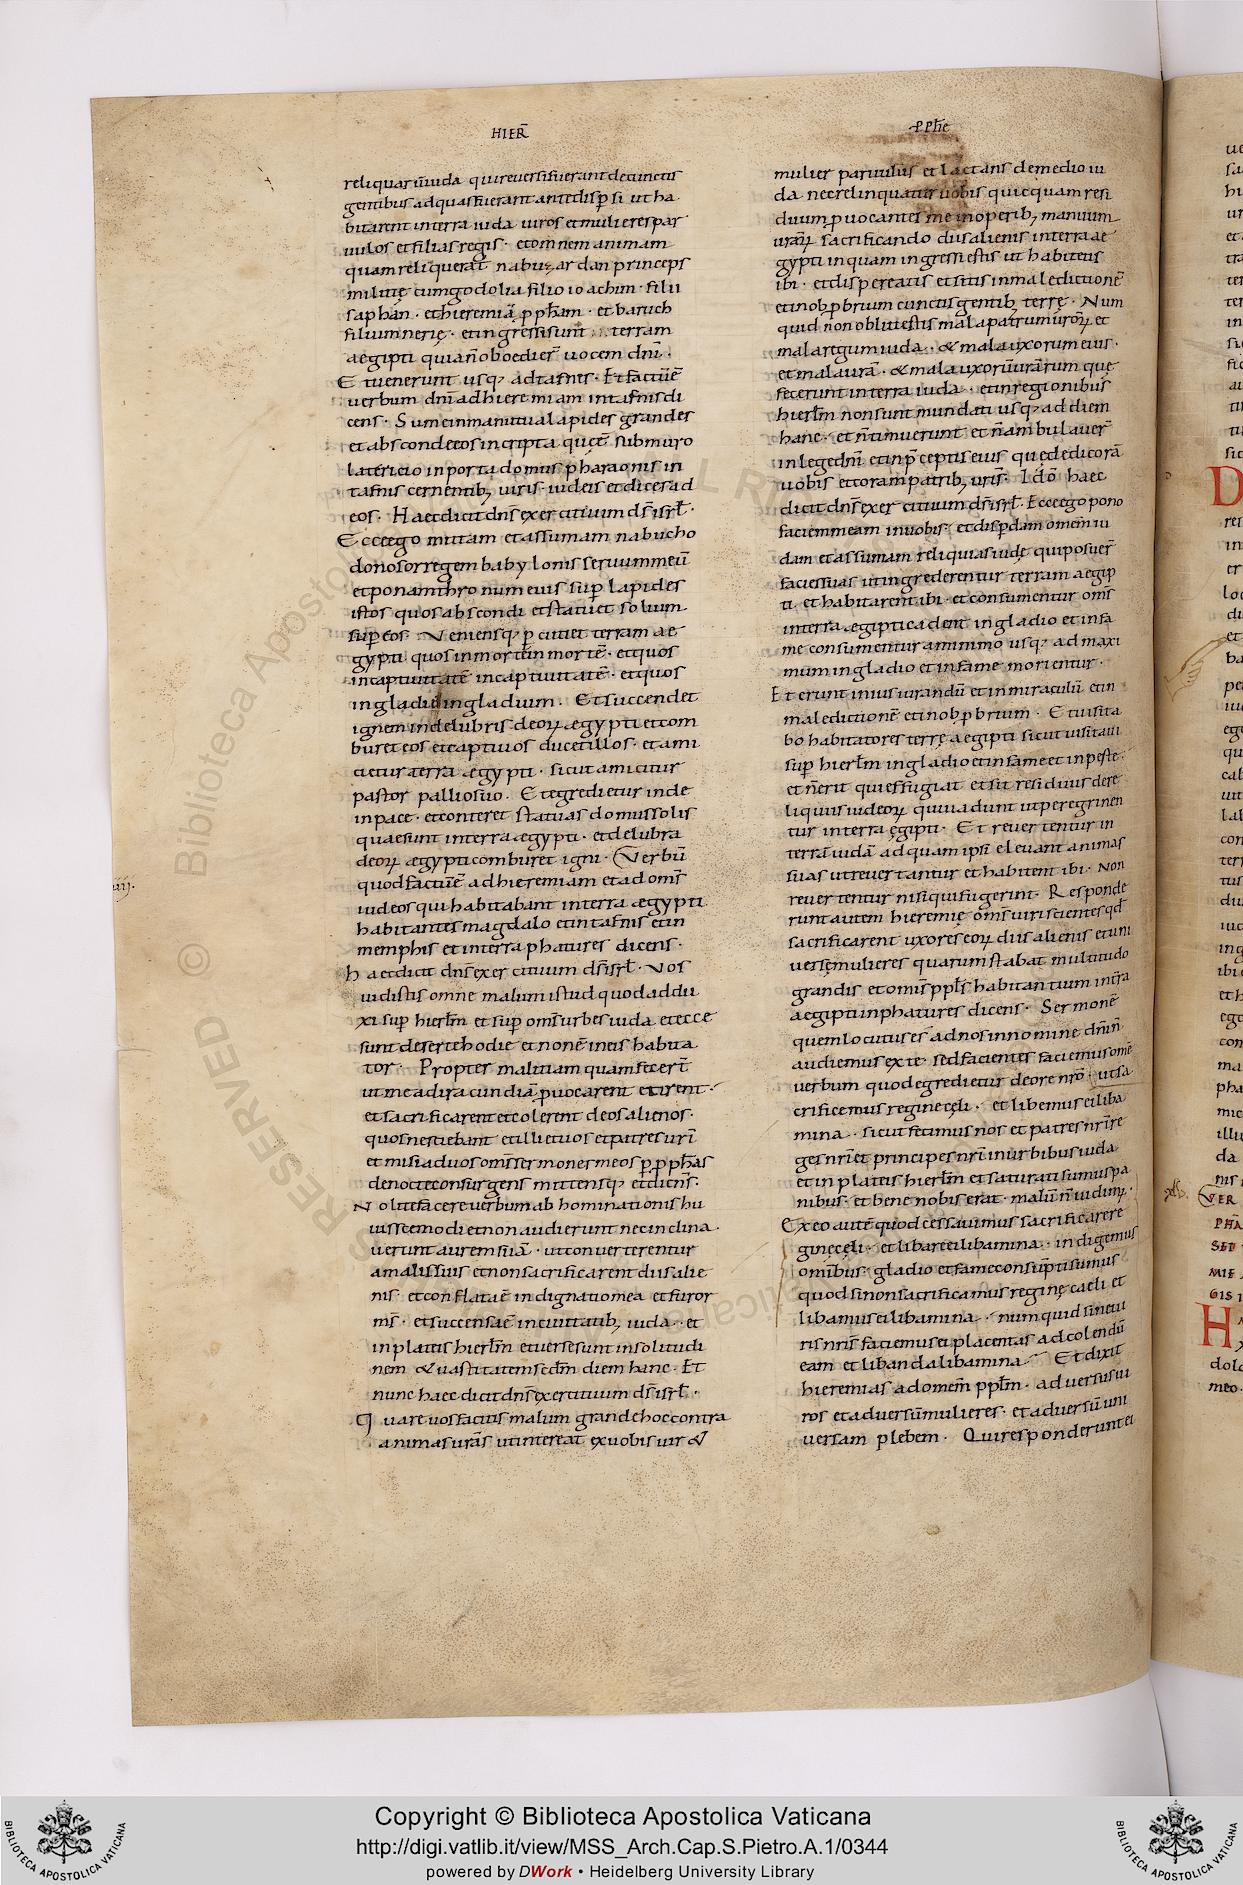 HIER̄
reliquarū iuda qui reuersi fuerant de cunctis
gentibus ad quas fuerant ante disp̄si ut ha
bitarent in terra iuda uiros et mulieres par
uulos et filias regis · et omnem animam
quam reliquerat nabuzardan princeps
militię cum godolia filio ioachim · filii
saphan · et hieremiā pphām · et baruch
filium nerię · et ingressi sunt terram
aegipti quia n̄ oboedier̄ uocem dn̄i ·
Et uenerunt usq; ad tafnes · Et factū ē
uerbum dn̄i ad hieremiam in tafnis di
cens · Sume in manu tua lapides grandes
et absconde eos in cripta quę ē sub muro
latericio in porta domus pharaonis in
tafnis cernentib; uiris iudeis et dices ad
eos · Haec dicit dn̄s exercituum dī isrl̄ ·
Ecce ego mittam et assumam nabucho
donosor regem babylonis seruum meū
et ponam thronum eius sup̄ lapides
istos quos abscondi et statuet solium
sup̄ eos · Veniensq; p̄cutiet terram ae
gypti quos in mortē in mortē · et quos
in captiuitatē in captiuitatē · et quos
in gladiū in gladium · Et succendet
ignem in delubris deor̄ ægypti et com
buret eos et captiuos ducet illos · et ami
cietur terra ægypti · sicut amicitur
pastor pallio suo · Et egredietur inde
in pace · et conteret statuas domus solis
quae sunt in terra ægypti · et delubra
deor̄ ægypti comburet igni · Verbū
quod factū ē ad hieremiam et ad om̄s
iudeos qui habitabant in terra ægypti
habitantes magdalo et in tafnis et in
memphis et in terra phatures dicens ·
haec dicit dn̄s exercituum dī isrl̄ · Vos
uidistis omne malum istud quod addu
xi sup̄ hierl̄m et sup̄ om̄s urbes iuda et ecce
sunt desertę hodie et non ē in eis habita
tor · Propter malitiam quam fecer̄t
ut me ad iracundiā p̄uocarent et irent ·
et sacrificarent et colerent deos alienos ·
quos nesciebant et illi et uos et patres ur̄i
et misi ad uos om̄s seruos meos pphās
de nocte consurgens mittensq; et dicens ·
Nolite facere uerbum abhominationis hu
iuscemodi et non audierunt nec inclina
uerunt aurem suā · ut conuerterentur
a malis suis et non sacrificarent diis alie
nis · et conflata ē indignatio mea et furor
m̄s · et succensa ē in ciuitatib; iuda · et
in plateis hierl̄m et uersę sunt in solitudi
nem & uastitatem scd̄m diem hanc · Et
nunc haec dicit dn̄s exercituum dī isrl̄ ·
Quare uos facitis malum grande hoc contra
animas ur̄as ut intereat ex uobis uir &
PPHE
mulier paruulus et lactans de medio iu
da nec relinquatur uobis quicquam resi
duum p̄uocantes me in operib; manuum
urar̄ sacrificando diis alienis in terra ae
gypti in quam ingressi estis ut habitetis
ibi · et dispereatis et sitis in maledictionē
et in obp̄brium cunctis gentib; terrę · Num
quid non obliti estis mala patrum ūror̄ et
mala regum iuda · & mala uxorum eius ·
et mala ur̄a · & mala uxorū ur̄arum quę
fecerunt in terra iuda · et in regionibus
hierl̄m non sunt mundati usq; ad diem
hanc · et n̄ timuerunt et n̄ ambulauer̄
in lege dn̄i et in p̄ceptis eius quę dedi corā
uobis et coram patrib; ur̄is · Ideo haec
dicit dn̄s exercituum dī isrl̄ · Ecce ego pono
faciem meam in uobis · et disp̄dam omēm iu
dam et assumam reliquias iudę qui posuer̄
facies suas ut ingrederentur terram aegip
ti et habitarent ibi · et consumentur om̄s
in terra ægipti cadent in gladio et in fa
me consumentur a minimo usq; ad maxi
mum in gladio et in fame morientur ·
Et erunt in iusiurandū et in miraculū et in
maledictionē et in obp̄brium · Et uisita
bo habitatores terrę aegipti sicut uisitaui
sup̄ hierl̄m in gladio et in fame et in peste ·
et n̄ erit qui effugiat et sit residuus de re
liquiis iudeor̄ qui uadunt ut peregrinen
tur in terra ęgipti · Et reuertentur in
terrā iudā ad quam ipsi eleuant animas
suas ut reuertantur et habitent ibi · Non
reuertentur nisi qui fugerint · Responde
runt autem hieremię om̄s uiri scientes qd̄
sacrificarent uxores eor̄ diis alienis et uni
uersę mulieres quarum stabat multitudo
grandis et om̄is ppl̄s habitantium in tr̄a
aegipti in phatures dicens · Sermonē
quem locutus es ad nos in nomine dn̄i n̄
audiemus ex te · sed facientes faciemus omē
uerbum quod egredietur de ore nr̄o · ut sa
crificemus reginę cęli · et libemus ei liba
mina · sicut fecimus nos et patres nr̄i re
ges nr̄i et principes nr̄i in urbibus iuda
et in plateis hierl̄m et saturati sumus pa
nibus · et bene nobis erat · malū n̄ uidim; ·
Ex eo autē quod cessauimus sacrificare re
ginę cęli · et libare ei libamina · indigemus
omībus · gladio et fame consūpti sumus
quod si non sacrificamus reginę caeli et
libamus ei libamina · numquid sine ui
ris nr̄is fecimus ei placentas ad colendū
eam et libanda libamina · Et dixit
hieremias ad omēm ppl̄m · aduersus ui
ros et aduersū mulieres · et aduersū uni
uersam plebem · Qui responderunt ei
Copyright © Biblioteca Apostolica Vaticana
http://digi.vatlib.it/view/MSS_Arch.Cap.S.Pietro.A.1/0344
powered by DWork • Heidelberg University Library